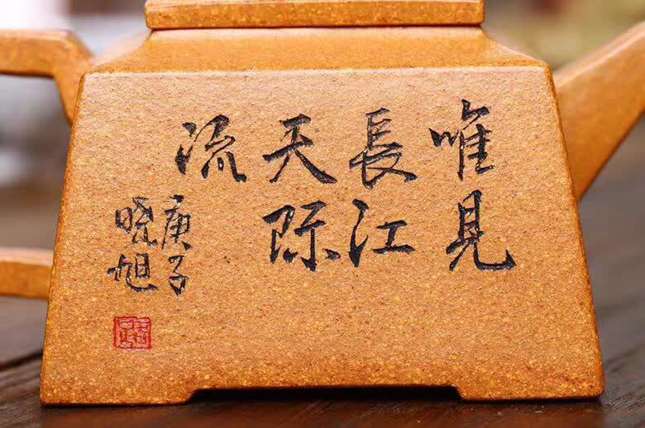 唯見
長江
天际
流
庚子
晓旭